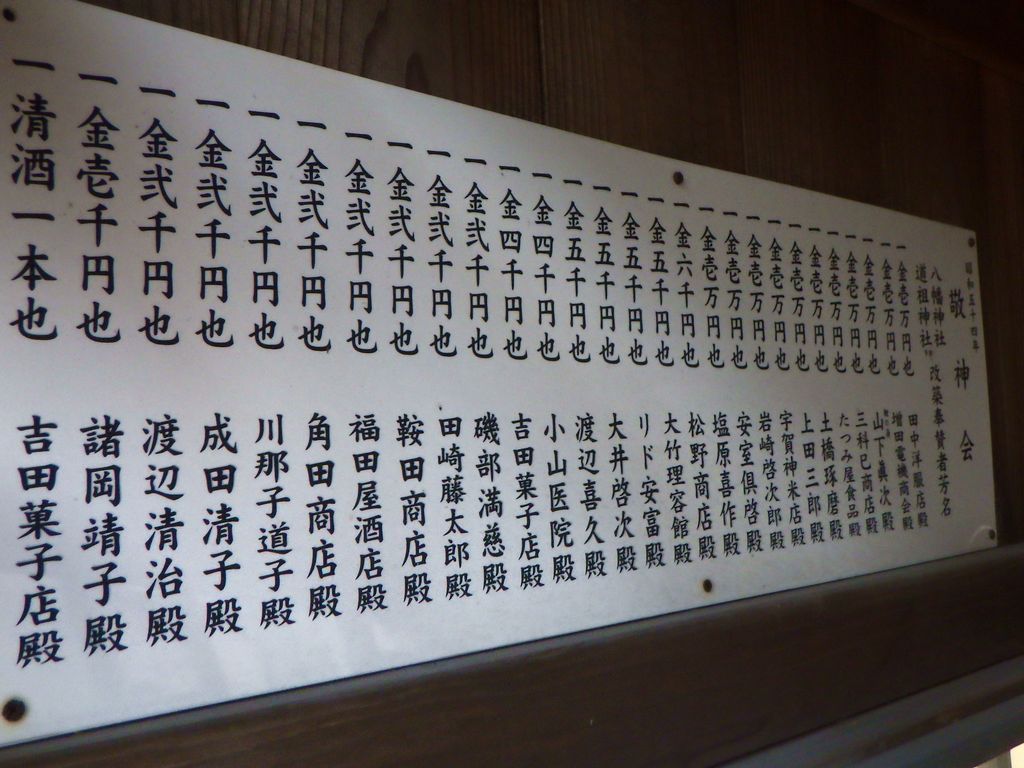 昭和五十四年
敬神会
八幡神社
道祖神社
改築奉賛者芳名
一金壱万円也 田中洋服店殿
一金壱万円也 増田電機商会殿
一金壱万円也 山下眞次殿
一金壱万円也 三科巳商店殿
一金壱万円也 たつみ屋食品殿
一金壱万円也 土橋琢磨殿
一金壱万円也 上田三郎殿
一金壱万円也 宇賀神米店殿
一金壱万円也 岩崎啓次郎殿
一金壱万円也 安室倶啓殿
一金壱万円也 塩原喜作殿
一金六千円也 松野商店殿
一金五千円也 大竹理容館殿
一金五千円也 リド安富殿
一金五千円也 大井啓次殿
一金五千円也 渡辺喜久殿
一金四千円也 小山医院殿
一金四千円也 吉田菓子店殿
一金弐千円也 磯部満慈殿
一金弐千円也 田崎藤太郎殿
一金弐千円也 鞍田商店殿
一金弐千円也 福田屋酒店殿
一金弐千円也 角田商店殿
一金弐千円也 川那子道子殿
一金弐千円也 成田清子殿
一金弐千円也 渡辺清治殿
一金壱千円也 諸岡靖子殿
一清酒一本也 吉田菓子店殿